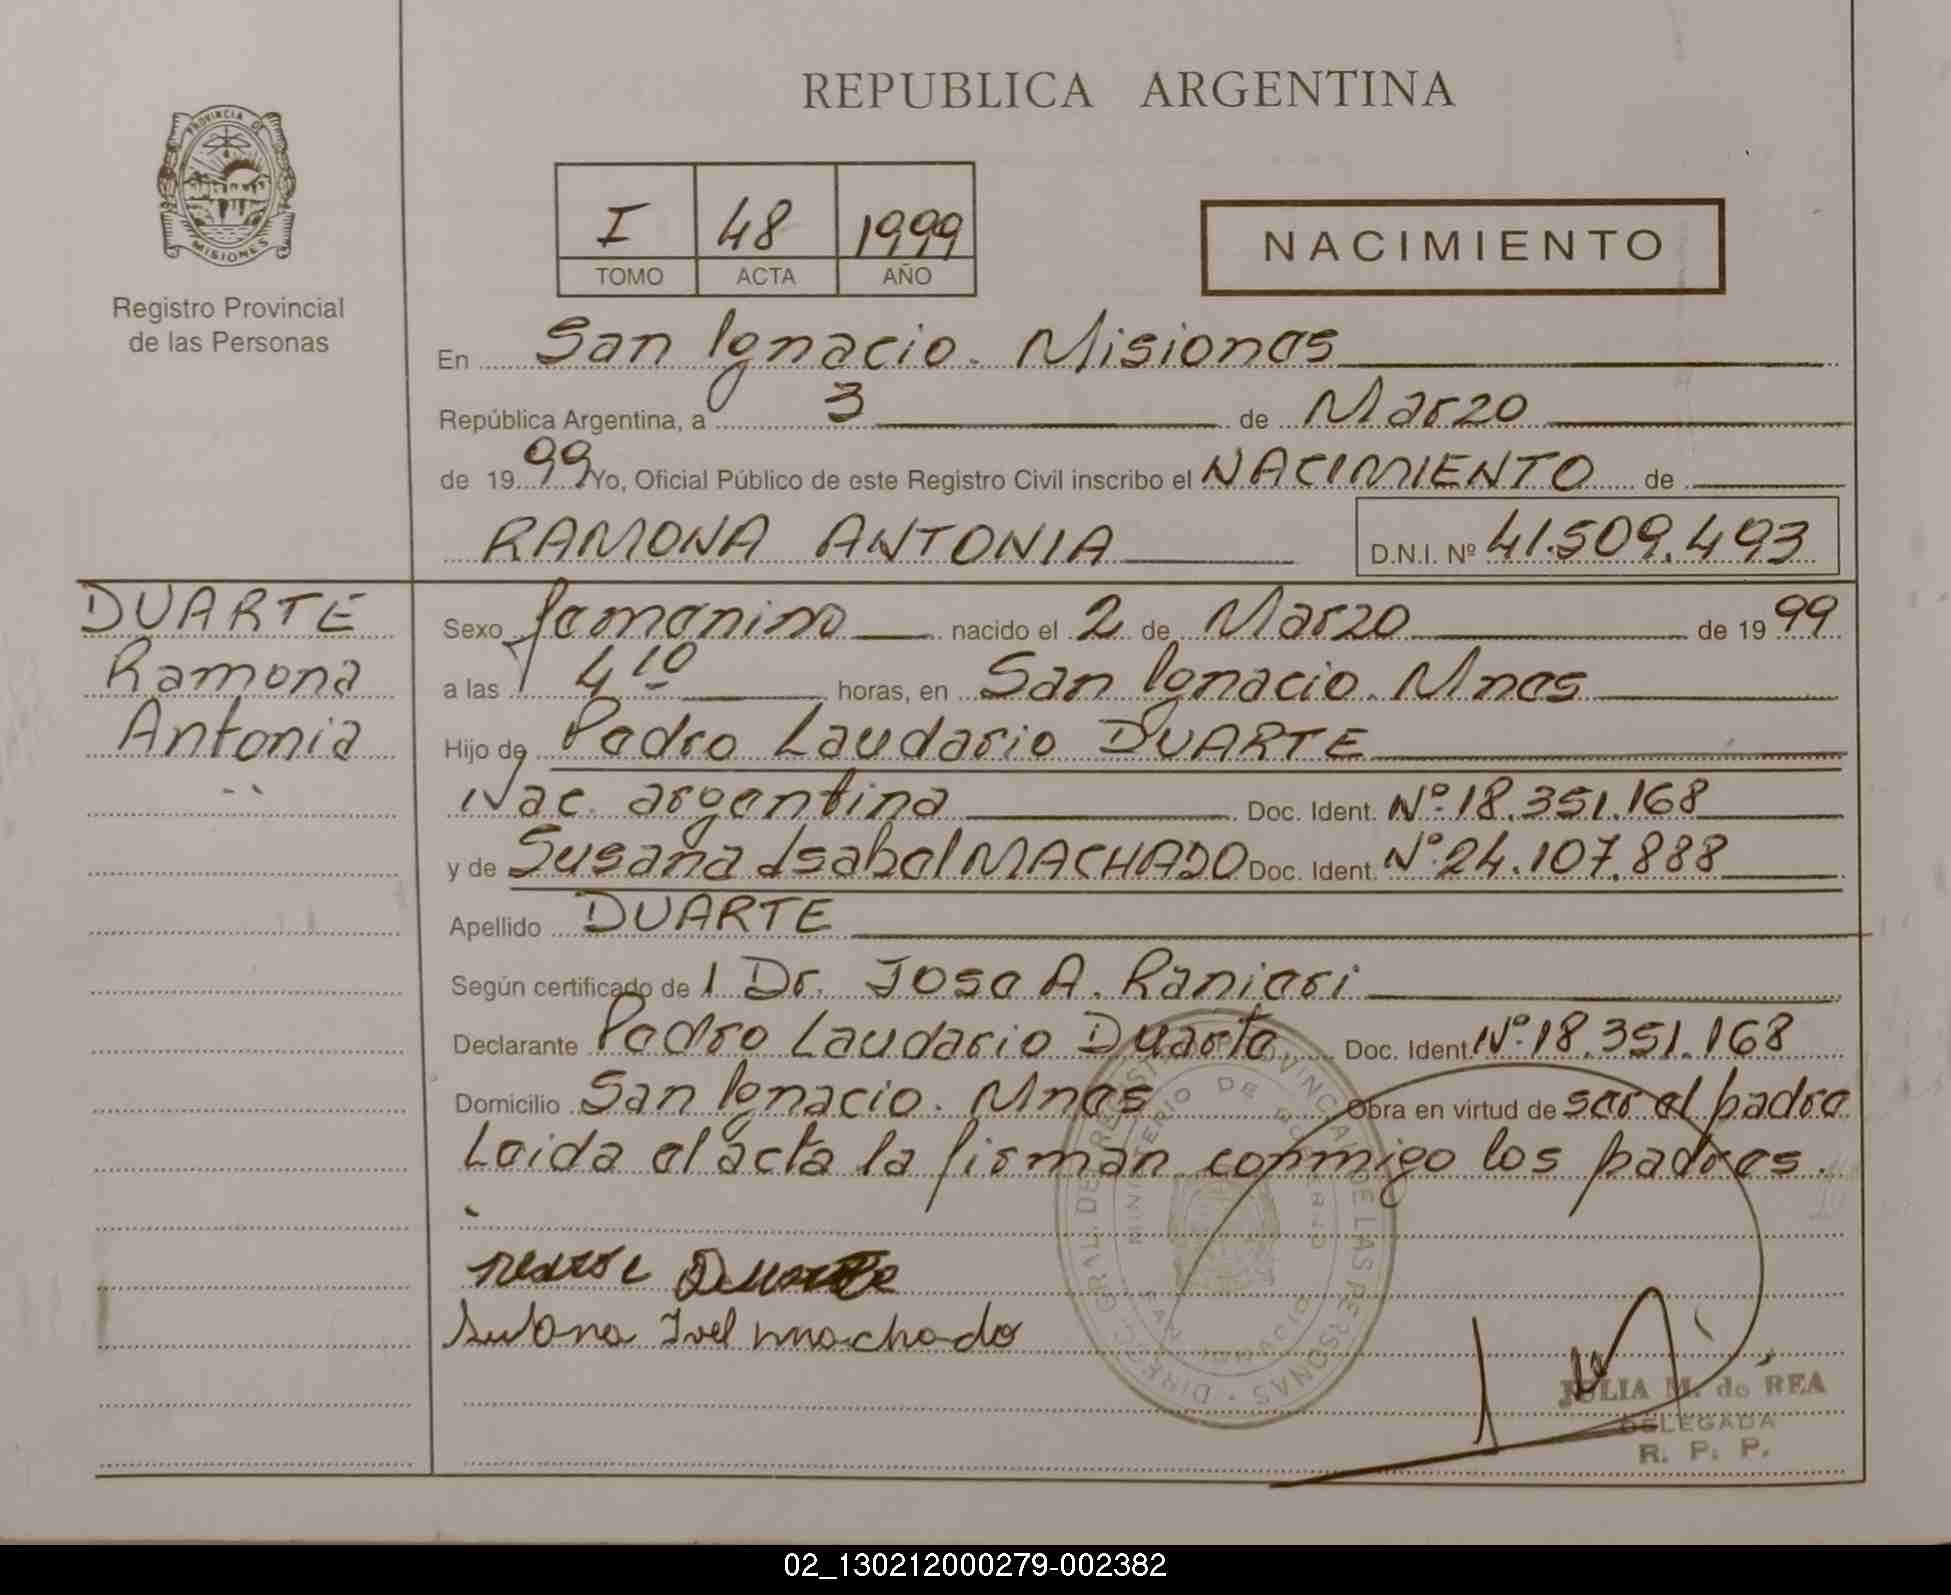 REPUBLICA ARGENTINA
PROVINCIA DE
MISIONES
Registro Provincial
de las Personas
I 48 1999
TOMO ACTA AÑO
NACIMIENTO
En San Ignacio. Misiones
República Argentina, a 3 de Marzo
de 1999 Yo, Oficial Público de este Registro Civil inscribo el NACIMIENTO de
RAMONA ANTONIA D.N.I. Nº 41.509.493
DUARTE
Ramona
Antonia
Sexo femenino nacido el 2 de Marzo de 1999
a las 4 10 horas, en San Ignacio. Mnes
Hijo de Pedro Laudario DUARTE
Nac. argentina Doc. Ident. Nº 18.351.168
y de Susana Isabel MACHADO Doc. Ident. Nº 24.107.888
Apellido DUARTE
Según certificado de l Dr. Jose A. Ranieri
Declarante Pedro Laudario Duarte Doc. Ident. Nº 18.351.168
Domicilio San Ignacio. Mnes Obra en virtud de ser el padre
Leida el acta la firman conmigo los padres.
Duarte
Susana Isvel machado
DIRECC. GRAL. DE REGISTRO PROVINCIAL DE LAS PERSONAS
MINISTERIO DE GOBIERNO
SAN IGNACIO
JULIA M. de REA
DELEGADA
R. P. P.
02_130212000279-002382